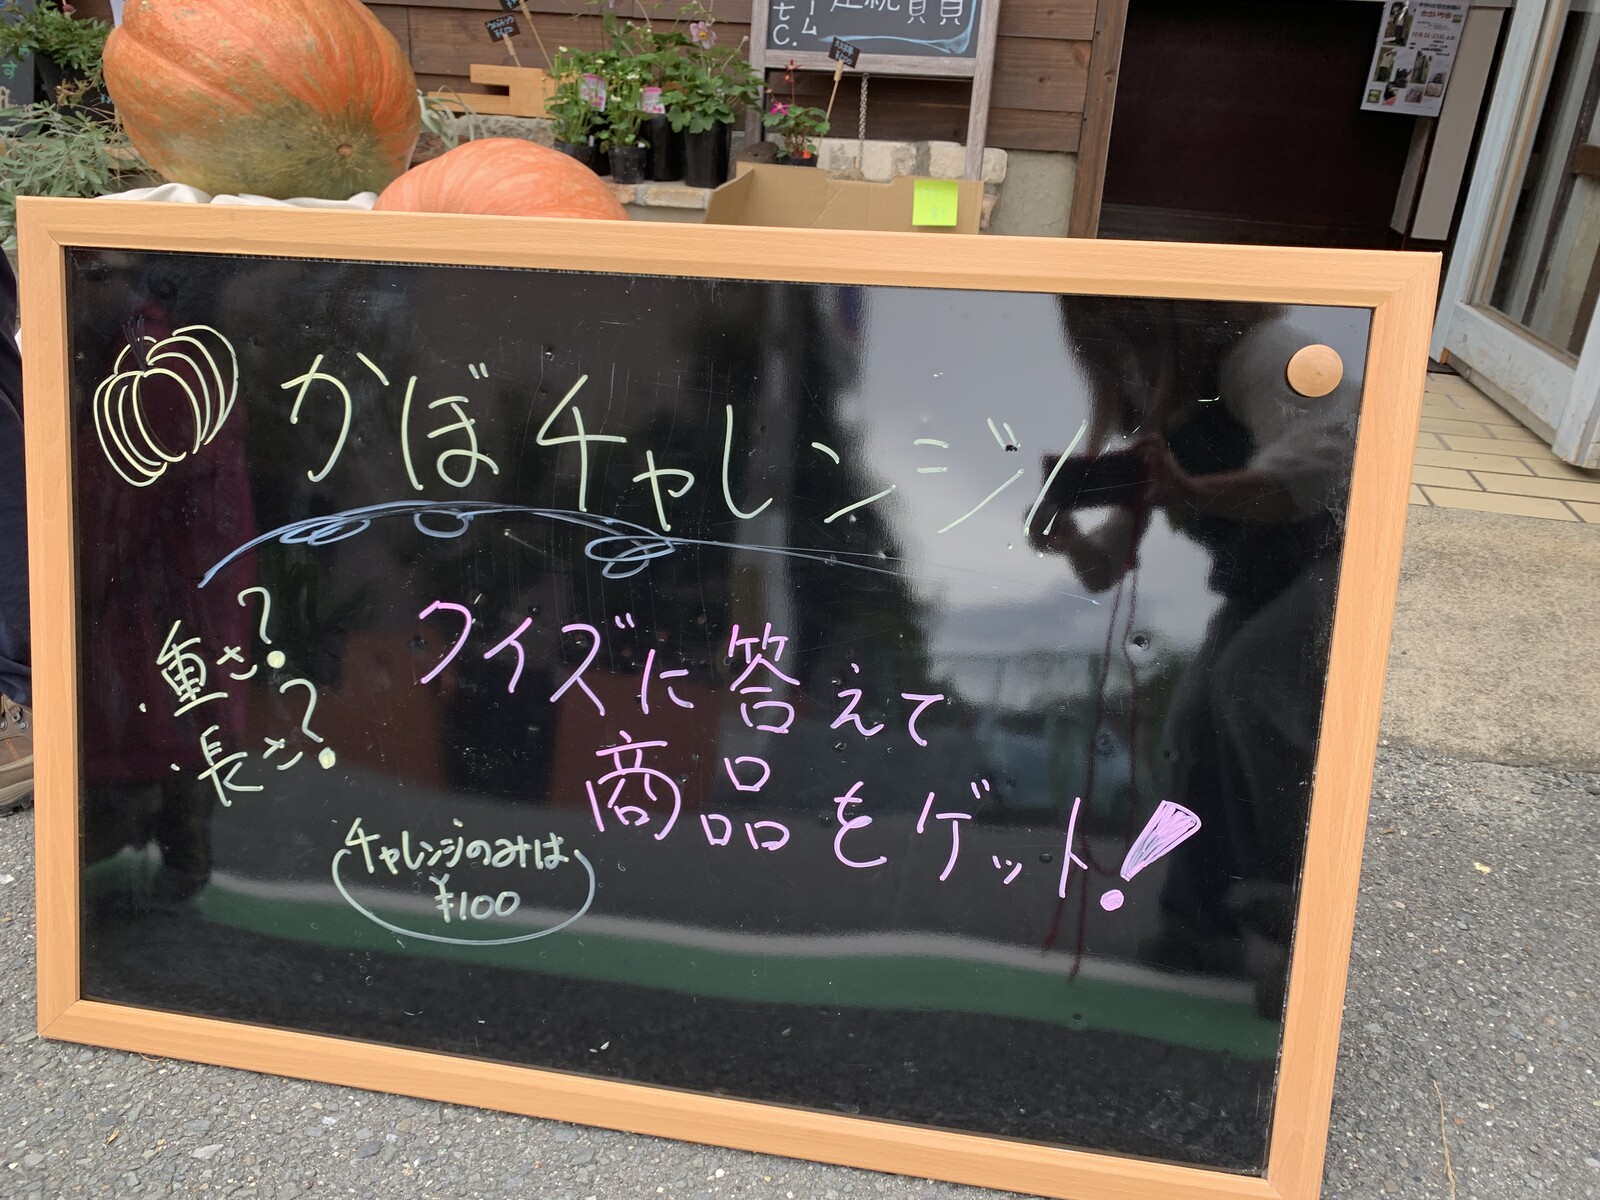 かぼチャレンジ!
・重さ?
・長さ?
クイズに答えて
商品をゲット!
チャレンジのみは
¥100